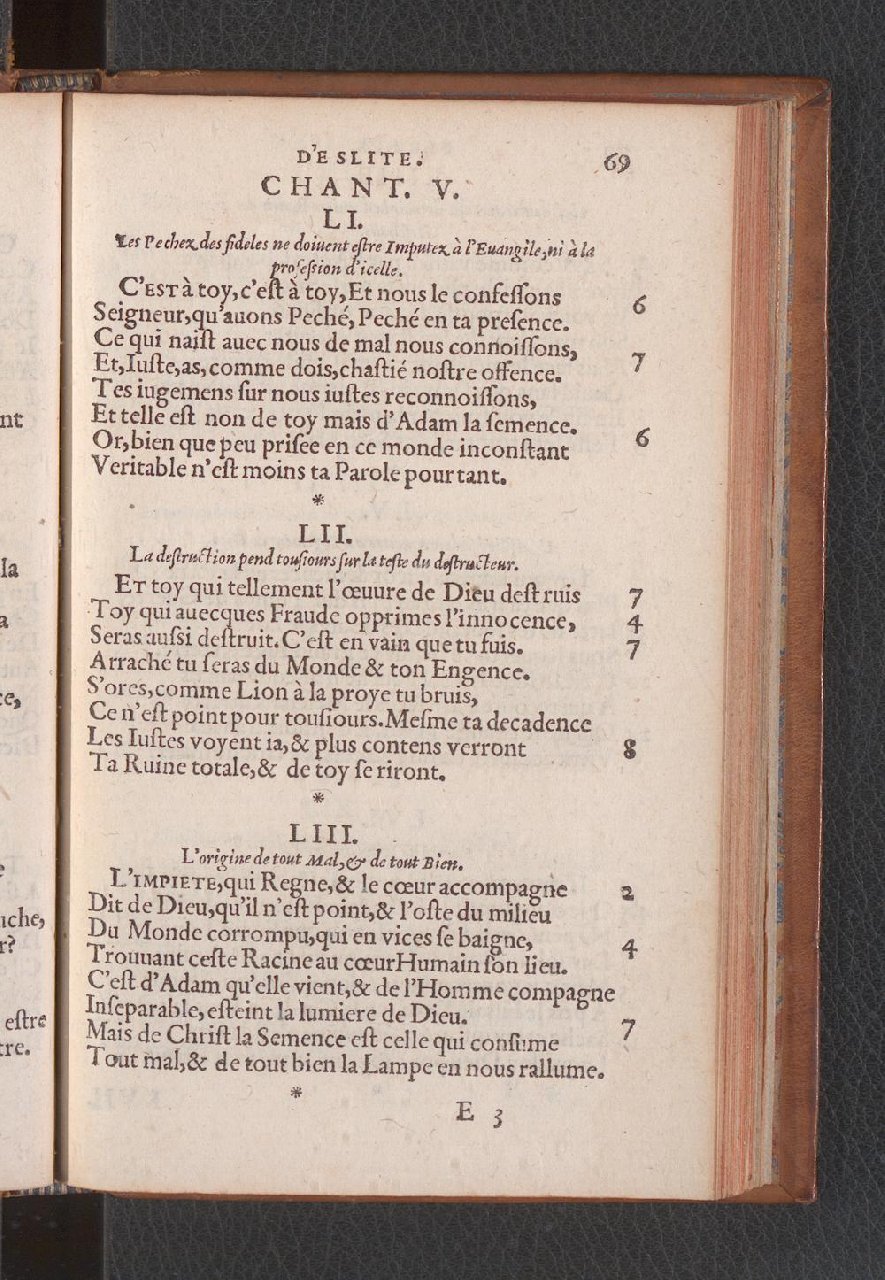 D'ESLITE. 69
CHANT. V.
LI.
Les Pechez des fideles ne doiuent estre Imputez à l'Euangile, ni à la
profession d'icelle.
C'EST à toy, c'est à toy, Et nous le confessons 6
Seigneur, qu'auons Peché, Peché en ta presence.
Ce qui naist auec nous de mal nous connoissons,
Et, Iuste, as, comme dois, chastié nostre offence. 7
Tes iugemens sur nous iustes reconnoissons,
Et telle est non de toy mais d'Adam la semence.
Or, bien que peu prisee en ce monde inconstant 6
Veritable n'est moins ta Parole pourtant.
*
LII.
La destruction pend tousiours sur la teste du destructeur.
ET toy qui tellement l'œuure de Dieu destruis 7
Toy qui auecques Fraude opprimes l'innocence, 4
Seras aussi destruit. C'est en vain que tu fuis. 7
Arraché tu seras du Monde & ton Engence.
S'ores, comme Lion à la proye tu bruis,
Ce n'est point pour tousiours. Mesme ta decadence
Les Iustes voyent ia, & plus contens verront 8
Ta Ruine totale, & de toy se riront.
*
LIII.
L'origine de tout Mal, & de tout Bien.
L'IMPIETE, qui Regne, & le cœur accompagne 2
Dit de Dieu, qu'il n'est point, & l'oste du milieu
Du Monde corrompu, qui en vices se baigne, 4
Trouuant ceste Racine au cœur Humain son lieu.
C'est d'Adam qu'elle vient, & de l'Homme compagne
Inseparable, esteint la lumiere de Dieu.
Mais de Christ la Semence est celle qui consume 7
Tout mal, & de tout bien la Lampe en nous rallume.
*
E 3